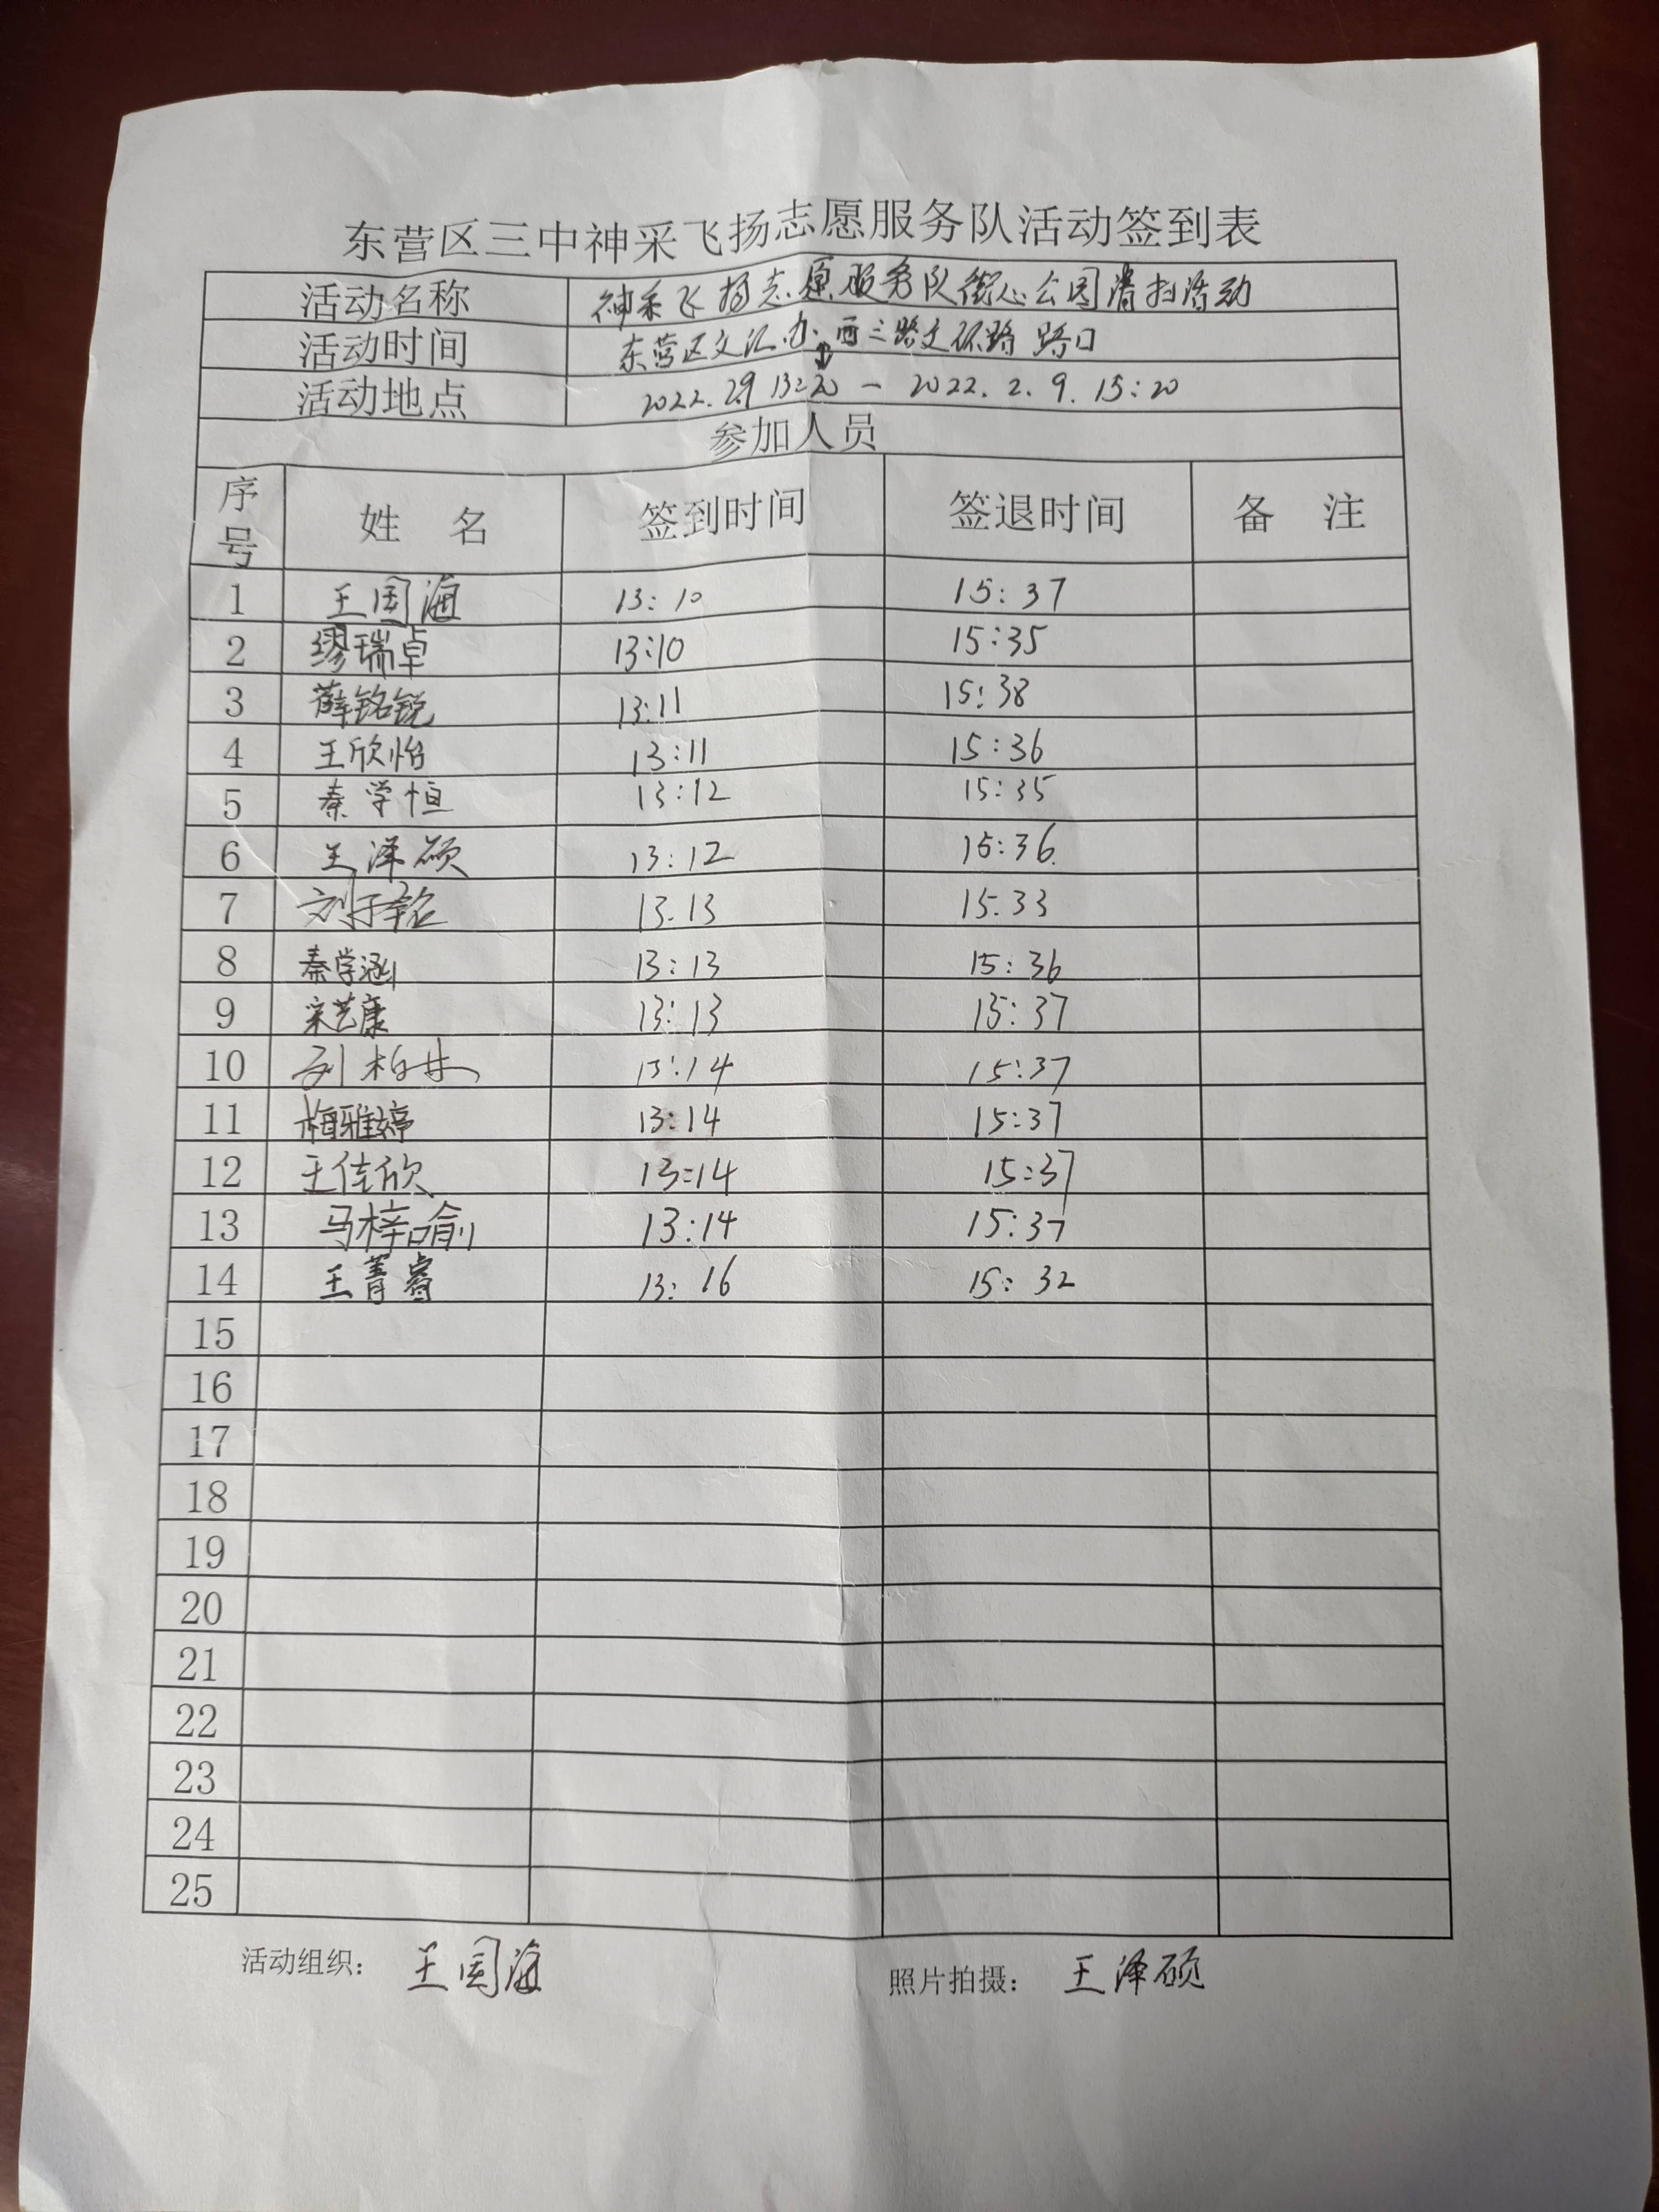 东营区三中神采飞扬志愿服务队活动签到表
活动名称 神采飞扬志愿服务队街心公园清扫活动
活动时间 东营区文汇办西三路文环路路口
活动地点 2022.2.9 13:20 — 2022.2.9. 15:20
参加人员
序号 姓 名 签到时间 签退时间 备 注
1 王国海 13:10 15:37
2 缪瑞卓 13:10 15:35
3 薛铭锐 13:11 15:38
4 王欣怡 13:11 15:36
5 秦学恒 13:12 15:35
6 王泽硕 13:12 15:36.
7 刘子铭 13.13 15.33
8 秦学涵 13:13 15:36
9 宋艺康 13:13 15:37
10 刘柏 13:14 15:37
11 梅雅婷 13:14 15:37
12 王佳欣 13:14 15:37
13 马梓喻 13:14 15:37
14 王菁睿 13:16 15:32
15
16
17
18
19
20
21
22
23
24
25
活动组织： 王国海 照片拍摄： 王泽硕